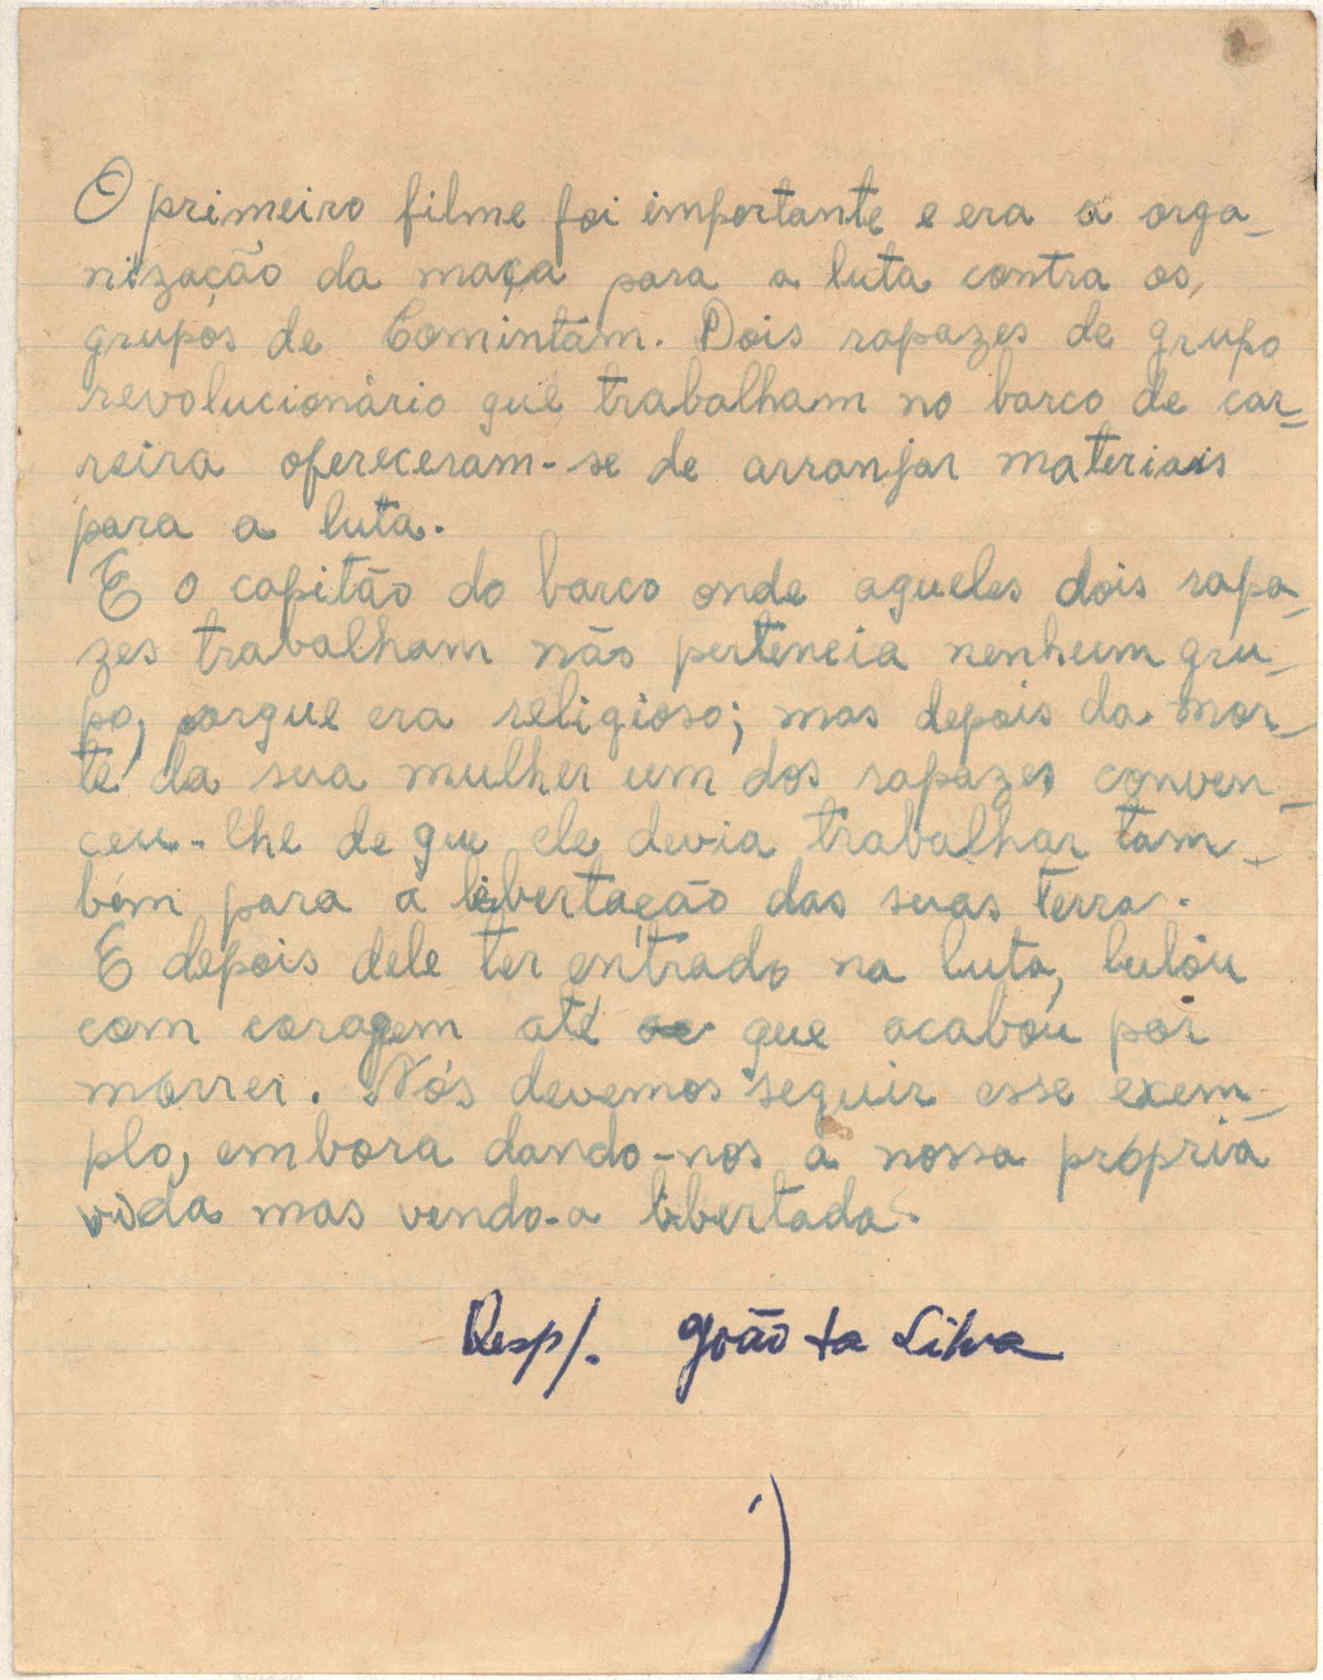 O primeiro filme foi importante e era a orga_
nização da maça para a luta contra os
grupos de Comintám. Dois rapazes de grupo
revolucionário que trabalham no barco de car_
reira ofereceram-se de arranjar materiais
para a luta.
E o capitão do barco onde aqueles dois rapa_
zes trabalham não pertencia nenhum gru_
po, porque era religioso; mas depois da mor_
te da sua mulher um dos rapazes conven_
ceu-lhe de que ele devia trabalhar tam_
bém para a libertação das suas terra.
E depois dele ter entrado na luta, lulou
com coragem até que acabou por
morrer. Nós devemos seguir esse exem_
plo, embora dando-nos a nossa própria
vida mas vendo-a libertada.
Resp/. João da Silva